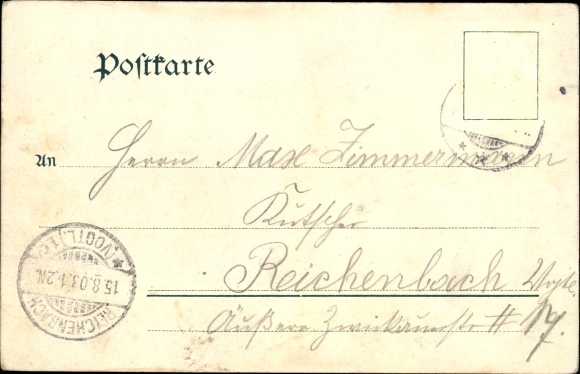 Postkarte
An Herrn Max Zimmermann
Kutscher
Reichenbach Vogtl.
Äußere Zwickauerstr # 17.
REICHENBACH (VOGTL.) 1 c
15.8.03. 1-2N.